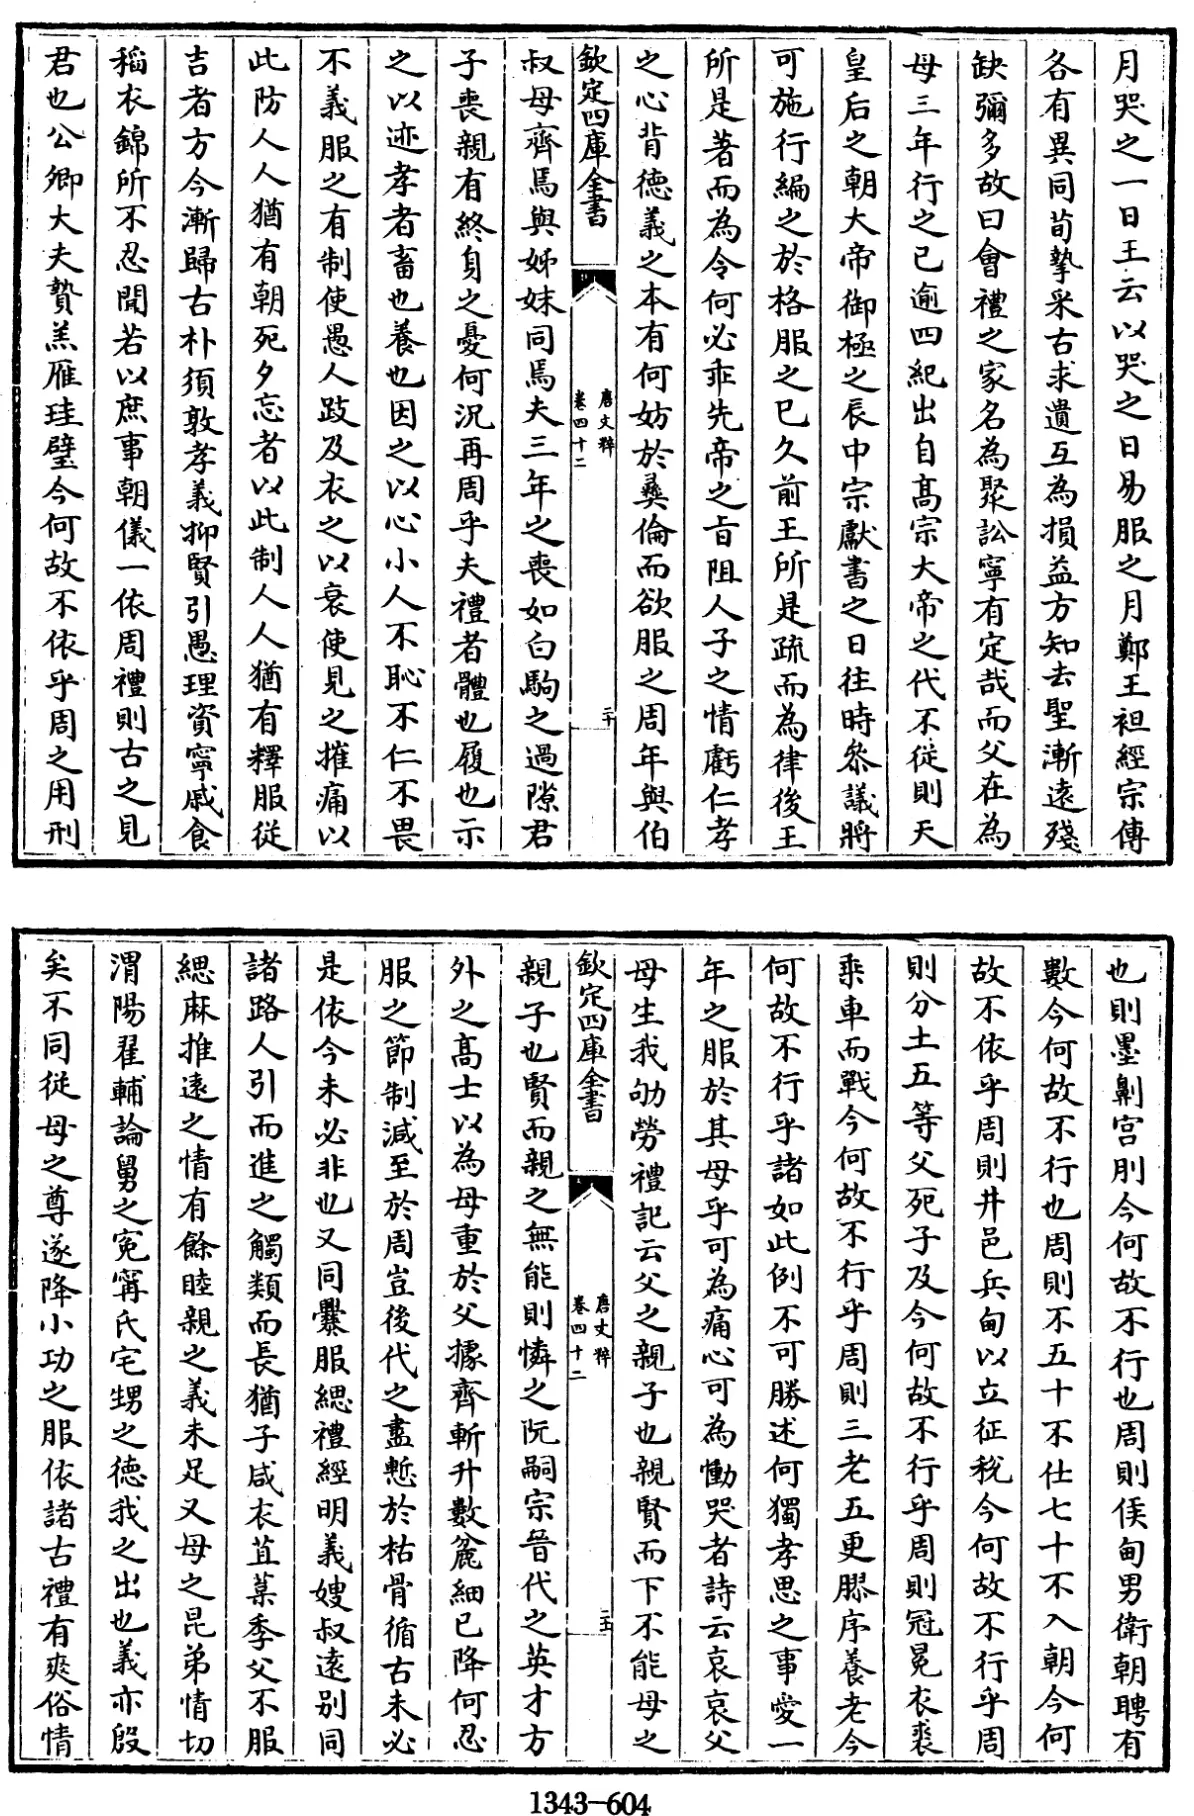 月哭之一日王云以哭之日易服之月鄭王袒經宗傳
各有異同荀摯采古求遺互為損益方知去聖漸遠殘
缺彌多故曰會禮之家名為聚訟寧有定哉而父在為
母三年行之已逾四紀出自髙宗大帝之代不從則天
皇后之朝大帝御極之辰中宗獻書之日往時叅議將
可施行編之於格服之已久前王所是疏而為律後王
所是著而為令何必乖先帝之旨阻人子之情虧仁孝
之心背德義之本有何妨於彛倫而欲服之周年與伯
欽定四庫全書
唐文粹
卷四十二
二十
叔母齊焉與姊妹同焉夫三年之喪如白駒之過隙君
子喪親有終身之憂何況再周乎夫禮者體也履也示
之以迹孝者畜也養也因之以心小人不恥不仁不畏
不義服之有制使愚人跂及衣之以衰使見之摧痛以
此防人人猶有朝死夕忘者以此制人人猶有釋服從
吉者方今漸歸古朴須敦孝義抑賢引愚理資寧戚食
稻衣錦所不忍聞若以庶事朝儀一依周禮則古之見
君也公卿大夫贄羔雁珪璧今何故不依乎周之用刑
也則墨劓宫刖今何故不行也周則侯甸男衛朝聘有
數今何故不行也周則不五十不仕七十不入朝今何
故不依乎周則井邑兵甸以立征稅今何故不行乎周
則分土五等父死子及今何故不行乎周則冠冕衣裘
乘車而戰今何故不行乎周則三老五更膠序養老今
何故不行乎諸如此例不可勝述何獨孝思之事愛一
年之服於其母乎可為痛心可為慟哭者詩云哀哀父
母生我劬勞禮記云父之親子也親賢而下不能母之
欽定四庫全書
唐文粹
卷四十二
二十一
親子也賢而親之無能則憐之阮嗣宗晉代之英才方
外之髙士以為母重於父據齊斬升數麄細已降何忍
服之節制減至於周豈後代之盡慙於枯骨循古未必
是依今未必非也又同爨服緦禮經明義嫂叔逺别同
諸路人引而進之觸類而長猶子咸衣苴菒季父不服
緦麻推逺之情有餘睦親之義未足又母之昆弟情切
渭陽翟輔論舅之寃甯氏宅甥之德我之出也義亦殷
矣不同從母之尊遂降小功之服依諸古禮有爽俗情
1343-604